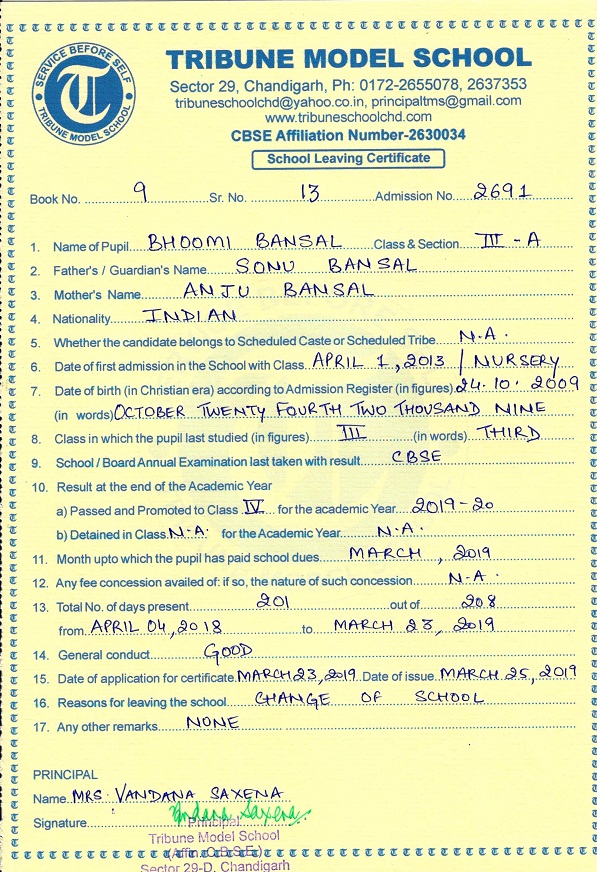 SERVICE BEFORE SELF
TRIBUNE MODEL SCHOOL
TRIBUNE MODEL SCHOOL
Sector 29, Chandigarh, Ph: 0172-2655078, 2637353
tribuneschoolchd@yahoo.co.in, principaltms@gmail.com
www.tribuneschoolchd.com
CBSE Affiliation Number-2630034
School Leaving Certificate
Book No. 9 Sr. No. 13 Admission No. 2691
1. Name of Pupil BHOOMI BANSAL Class & Section III - A
2. Father's / Guardian's Name SONU BANSAL
3. Mother's Name ANJU BANSAL
4. Nationality INDIAN
5. Whether the candidate belongs to Scheduled Caste or Scheduled Tribe N.A.
6. Date of first admission in the School with Class APRIL 1, 2013 / NURSERY
7. Date of birth (in Christian era) according to Admission Register (in figures) 24.10.2009
(in words) OCTOBER TWENTY FOURTH TWO THOUSAND NINE
8. Class in which the pupil last studied (in figures) III (in words) THIRD
9. School / Board Annual Examination last taken with result CBSE
10. Result at the end of the Academic Year
a) Passed and Promoted to Class IV for the academic Year 2019-20
b) Detained in Class N.A. for the Academic Year N.A.
11. Month upto which the pupil has paid school dues MARCH, 2019
12. Any fee concession availed of: if so, the nature of such concession N.A.
13. Total No. of days present 201 out of 208
from APRIL 04, 2018 to MARCH 23, 2019
14. General conduct GOOD
15. Date of application for certificate MARCH 23, 2019 Date of issue MARCH 25, 2019
16. Reasons for leaving the school CHANGE OF SCHOOL
17. Any other remarks NONE
PRINCIPAL
Name MRS. VANDANA SAXENA
Signature Vandana Saxena
Principal
Tribune Model School
(Affn. C.B.S.E.)
Sector 29-D, Chandigarh